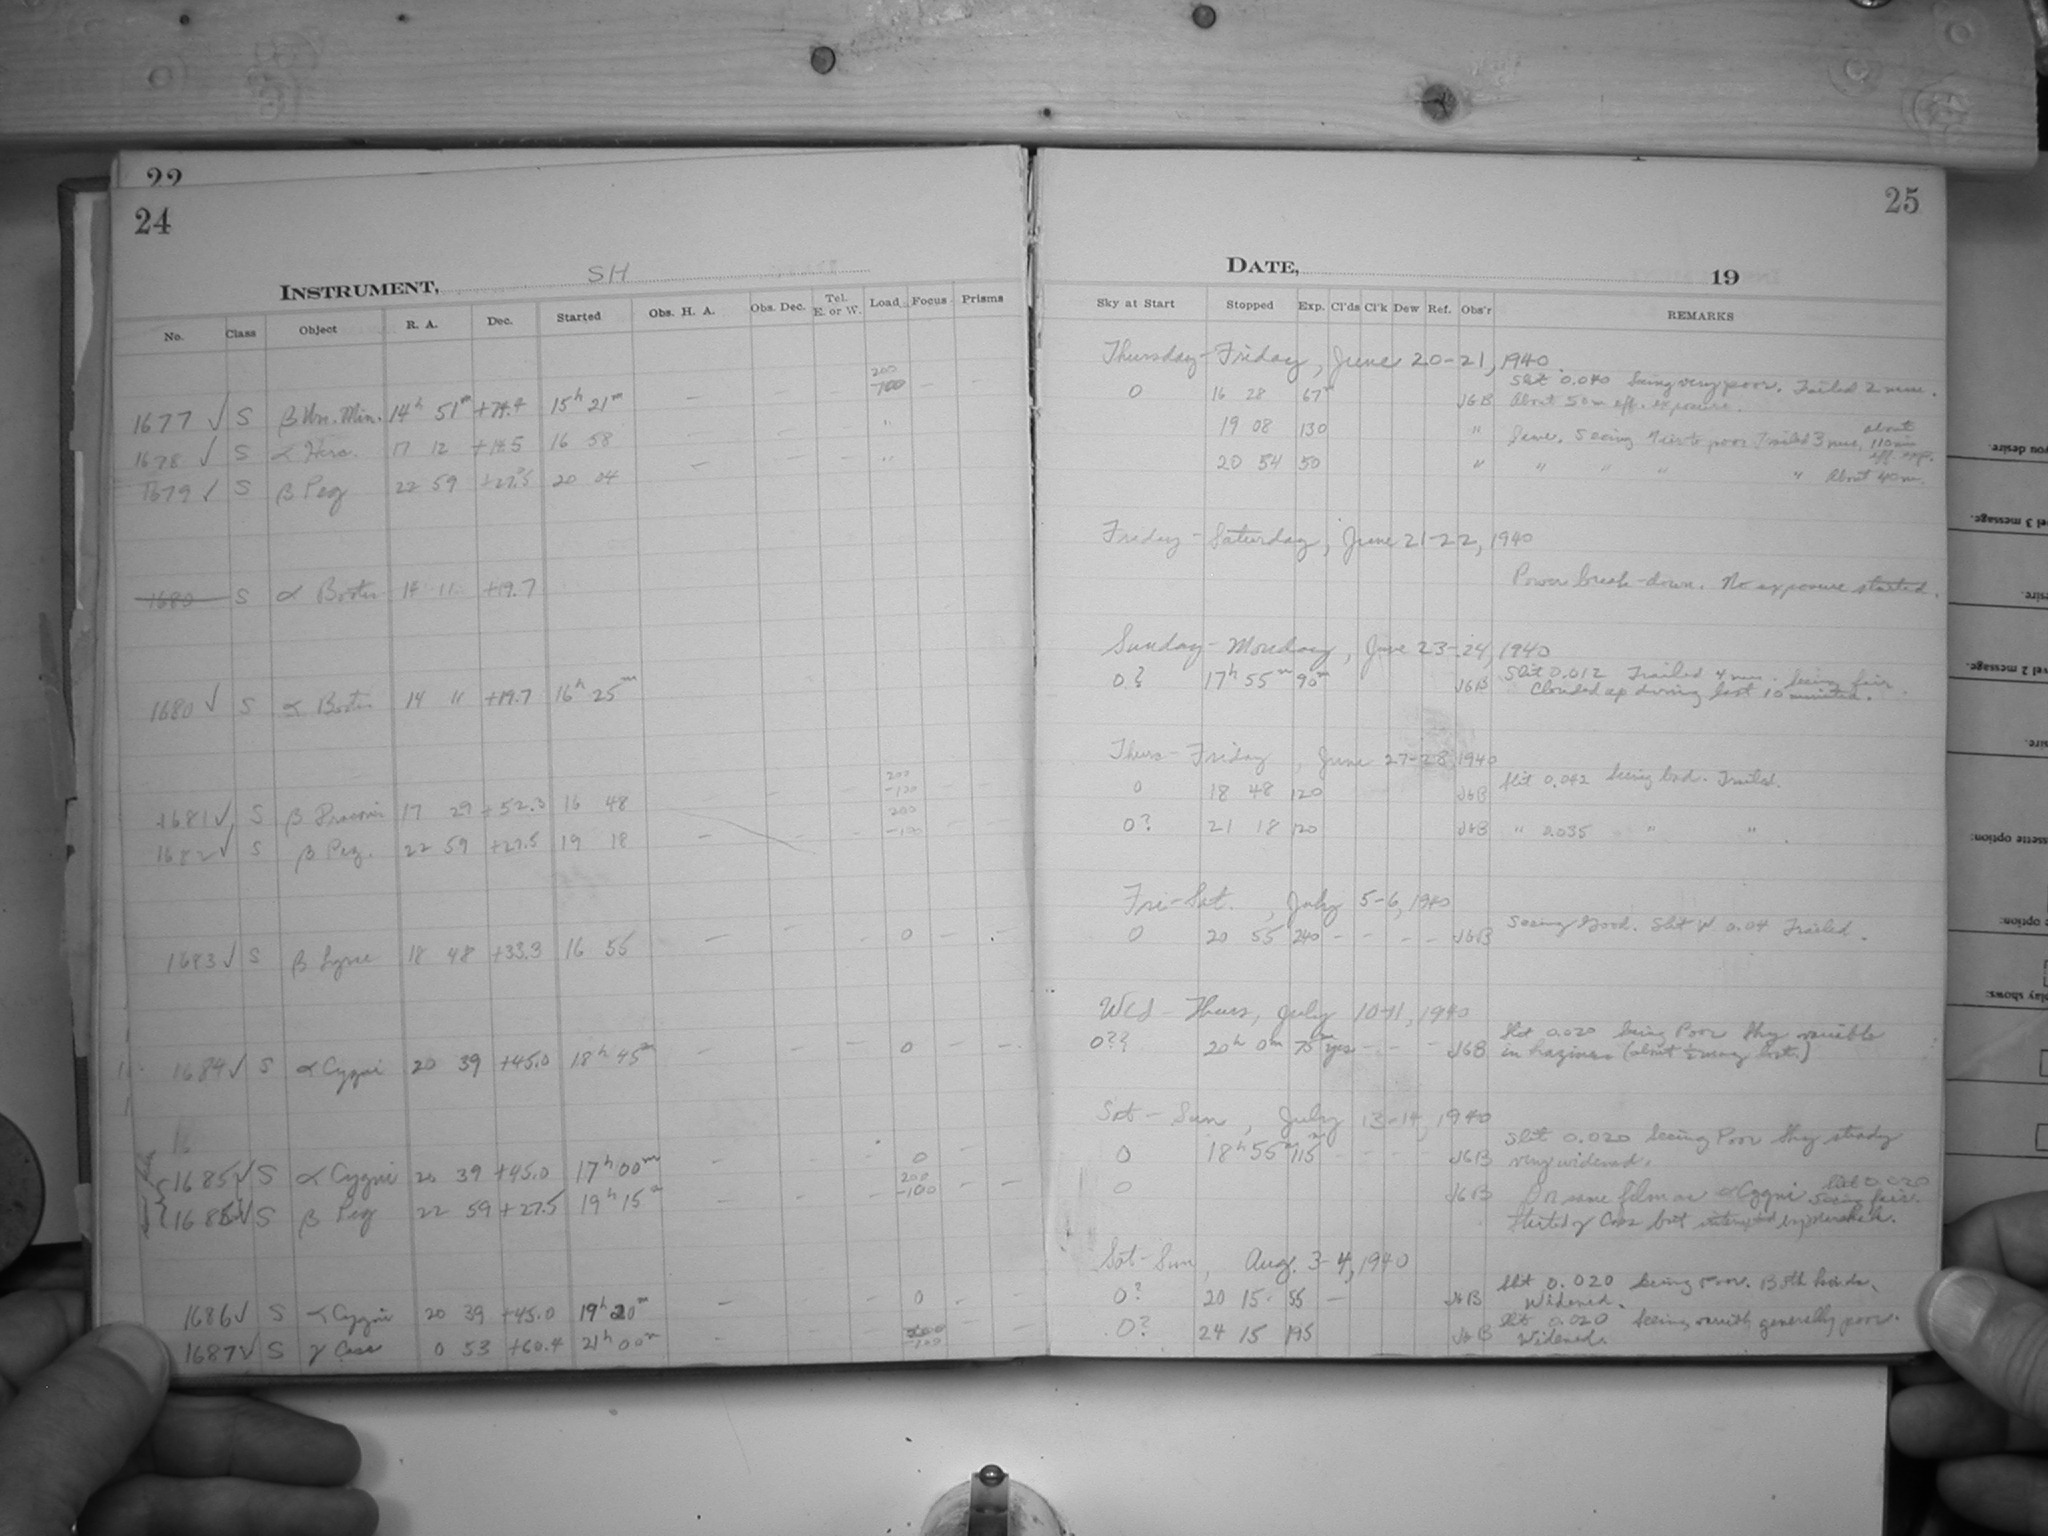 22
24
INSTRUMENT, SH
No. Class Object R. A. Dec. Started Obs. H. A. Obs. Dec. Tel. E. or W. Load Focus Prisms
200
1677 ✓ S β Urs. Min. 14h 51m +74.4 15h 21m — — — -100 — —
1678 ✓ S α Herc. 17 12 +14.5 16 58 "
1679 ✓ S β Peg 22 59 +27.5 20 04 — — — "
1680 S α Bootis 14 11 +19.7
1680 ✓ S α Bootis 14 11 +19.7 16h 25m
200
1681 ✓ S β Draconis 17 29 +52.3 16 48 -100
200
1682 ✓ S β Peg. 22 59 +27.5 19 18 — — — -100 —
1683 ✓ S β Lyrae 18 48 +33.3 16 55 — — — 0 — —
1684 ✓ S α Cygni 20 39 +45.0 18h 45m — — — 0 — —
16
1685 ✓ S α Cygni 20 39 +45.0 17h 00m — — — 0 — —
200
1685 ✓ S β Peg 22 59 +27.5 19h 15m — — — -100 — —
1686 ✓ S α Cygni 20 39 +45.0 19h 20m — — — 0 — —
1687 ✓ S γ Cass 0 53 +60.4 21h 00m — — — 200 -100 — —
25
DATE, 19
Sky at Start Stopped Exp. Cl'ds Cl'k Dew Ref. Obs'r REMARKS
Thursday-Friday, June 20-21, 1940.
0 16 28 67m JGB Slit 0.040 Seeing very poor. Trailed 2 mm.
About 50m eff. exposure.
19 08 130 " Same. Seeing Fair to poor Trailed 3 mm, about 110 min eff. exp.
20 54 50 " " " " " About 40m.
Friday-Saturday, June 21-22, 1940
Power break-down. No exposure started.
Sunday-Monday, June 23-24, 1940
0? 17h 55m 90m JGB Slit 0.012 Trailed 4 mm. Seeing fair.
Clouded up during last 10 minutes.
Thurs-Friday, June 27-28, 1940
0 18 48 120 JGB Slit 0.042 Seeing bad. Trailed.
0? 21 18 120 JGB " 0.035 " "
Fri-Sat., July 5-6, 1940
0 20 55 240 — — — — JGB Seeing Good. Slit W. 0.04 Trailed.
Wed-Thurs, July 10-11, 1940
0?? 20h 0m 75m yes — — — JGB Slit 0.020 Seeing Poor Sky variable
in haziness (about ½ way lost.)
Sat-Sun, July 13-14, 1940
0 18h 55m 115m — — — — JGB Slit 0.020 Seeing Poor Sky steady
very widened.
0 JGB On same film as α Cygni Slit 0.020 Seeing fair.
Started γ Cass but
Sat-Sun, Aug. 3-4, 1940
0? 20 15 55 — JGB Slit 0.020 Seeing Poor.
Widened.
0? 24 15 195 JGB Slit 0.020 Seeing generally poor.
Widened.
you desire.
el 3 message.
esire.
vel 2 message.
sire.
ssette option:
option:
play shows: